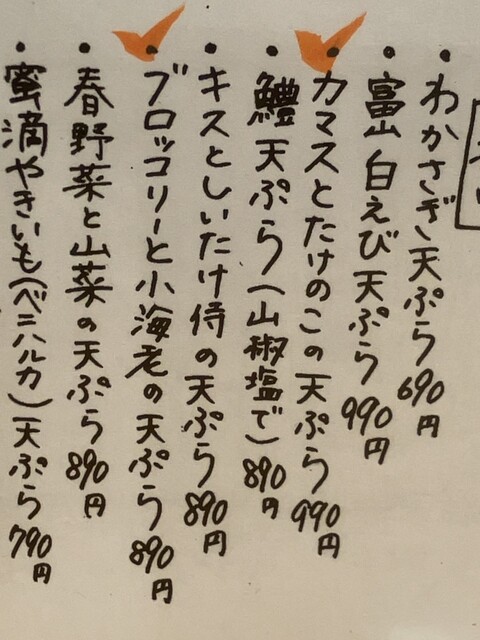 わかさぎ天ぷら690円
富山白えび天ぷら990円
カマスとたけのこの天ぷら990円
鱧天ぷら(山椒塩で)890円
キスとしいたけ侍の天ぷら890円
ブロッコリーと小海老の天ぷら890円
春野菜と山菜の天ぷら890円
蜜滴やきいも(ベニハルカ)天ぷら790円